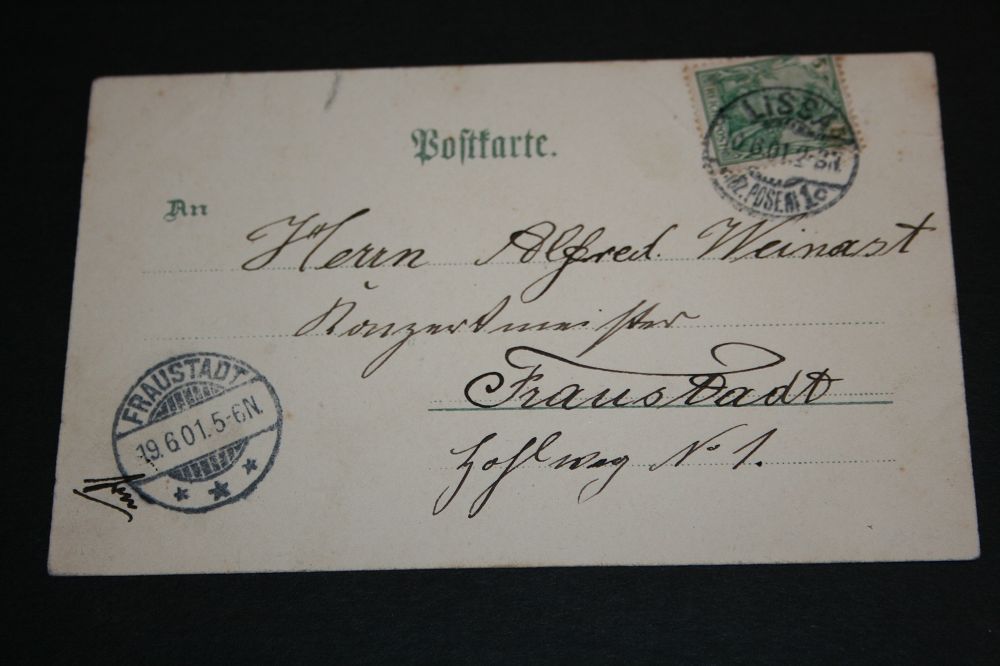 Postkarte.
LISSA
6.01.2-3N.
(BZ. POSEN) 1c
An
Herrn Alfred Weinast
Konzertmeister
Fraustadt
Hohlweg No 1.
FRAUSTADT
19.6.01.5-6N.